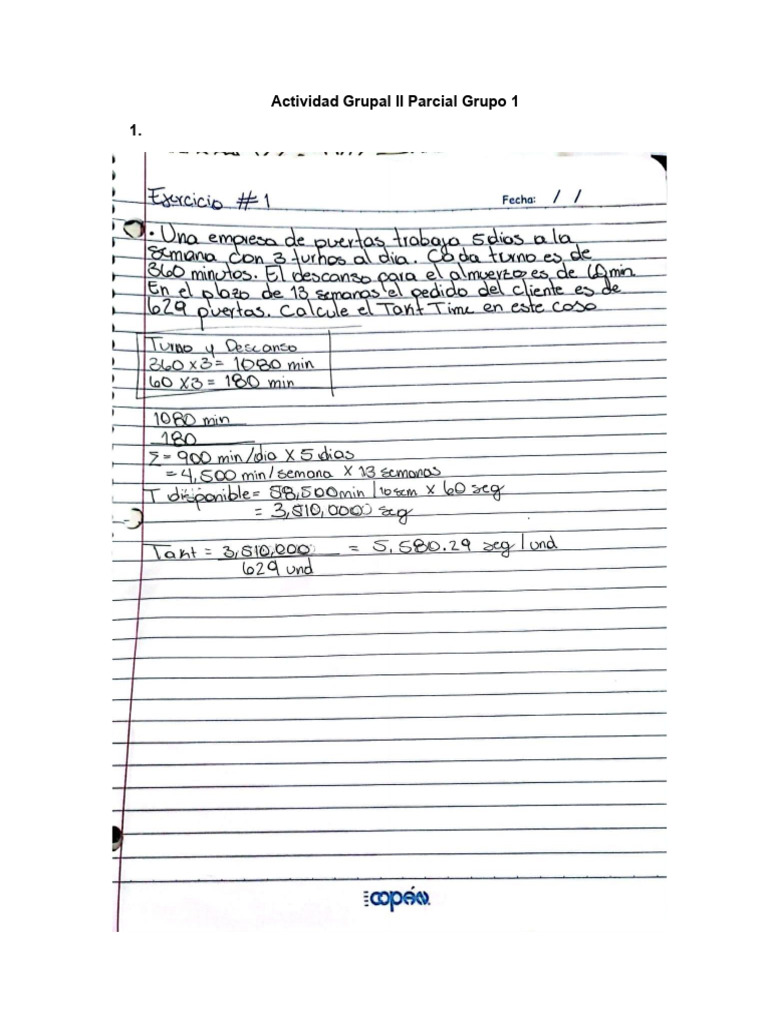 Actividad Grupal II Parcial Grupo 1
1.
Ejercicio #1 Fecha: / /
• Una empresa de puertas trabaja 5 dias a la
semana con 3 turnos al dia. Cada turno es de
360 minutos. El descanso para el almuerzo es de 60 min
En el plazo de 13 semanas el pedido del cliente es de
629 puertas. Calcule el Takt Time en este caso
Turno y Descanso
360 x 3 = 1080 min
60 x 3 = 180 min
1080 min
180
Σ = 900 min/dia x 5 dias
= 4,500 min/semana x 13 semanas
T disponible = 58,500 min / x 60 seg
= 3,510,000 seg
Takt = 3,510,000 = 5,580.29 seg/und
629 und
copán